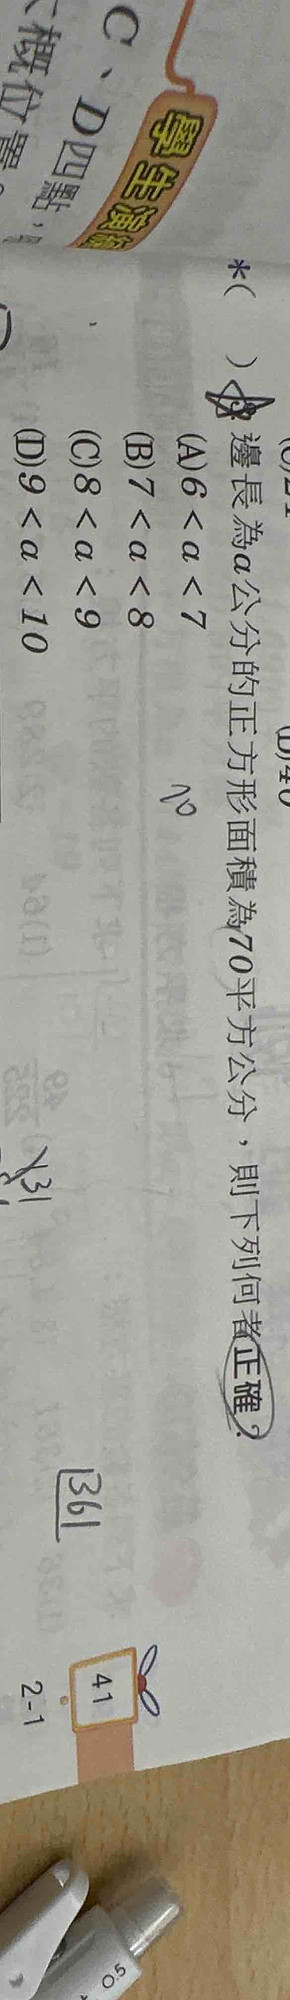 C、D四點，
概位置。
學生演練
(D)40
*(　) 邊長為a公分的正方形面積為70平方公分，則下列何者正確？
(A)6＜a＜7
(B)7＜a＜8
(C)8＜a＜9
(D)9＜a＜10
70
√31
√361
41
2-1
0.5